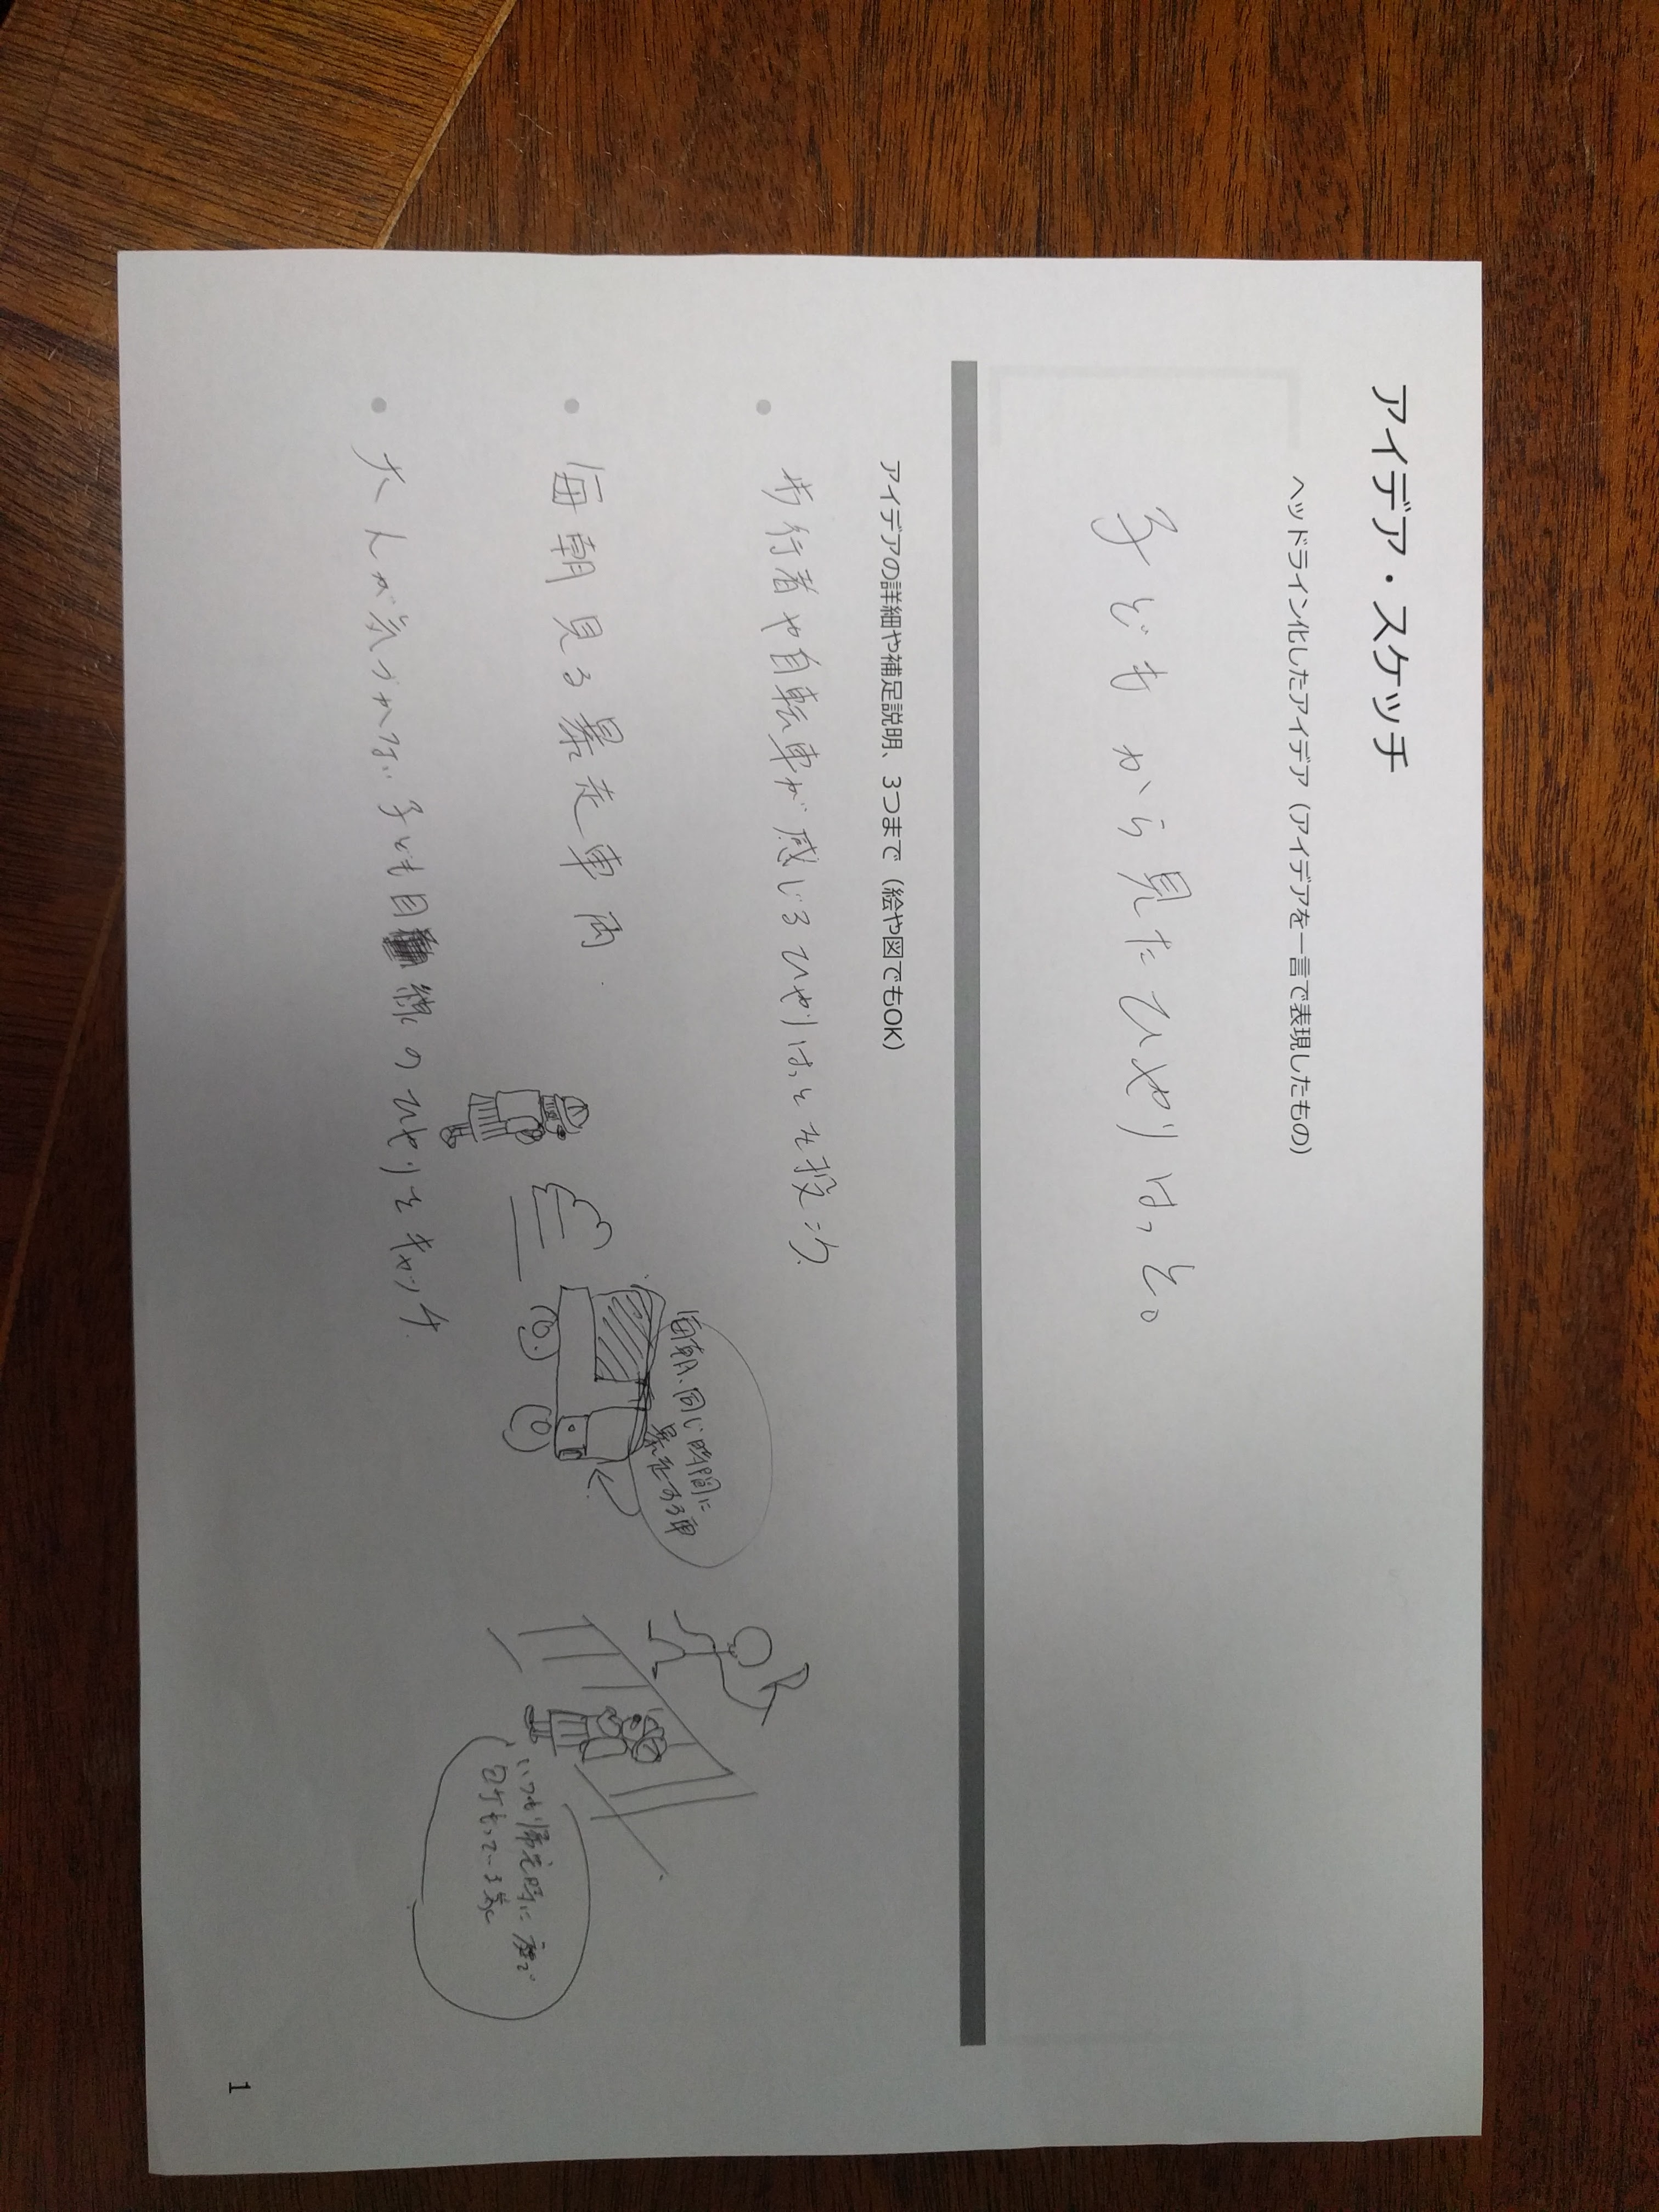 アイデア・スケッチ
ヘッドライン化したアイデア（アイデアを一言で表現したもの）
子どもから見たひやりはっと。
アイデアの詳細や補足説明、3つまで（絵や図でもOK）
歩行者や自転車が感じるひやりはっとを投
毎朝見る暴走車両.
大人が気づかない子ども目線のひやりをキャッチ.
毎朝、同じ時間に
暴走する車
いつも帰宅時に
1